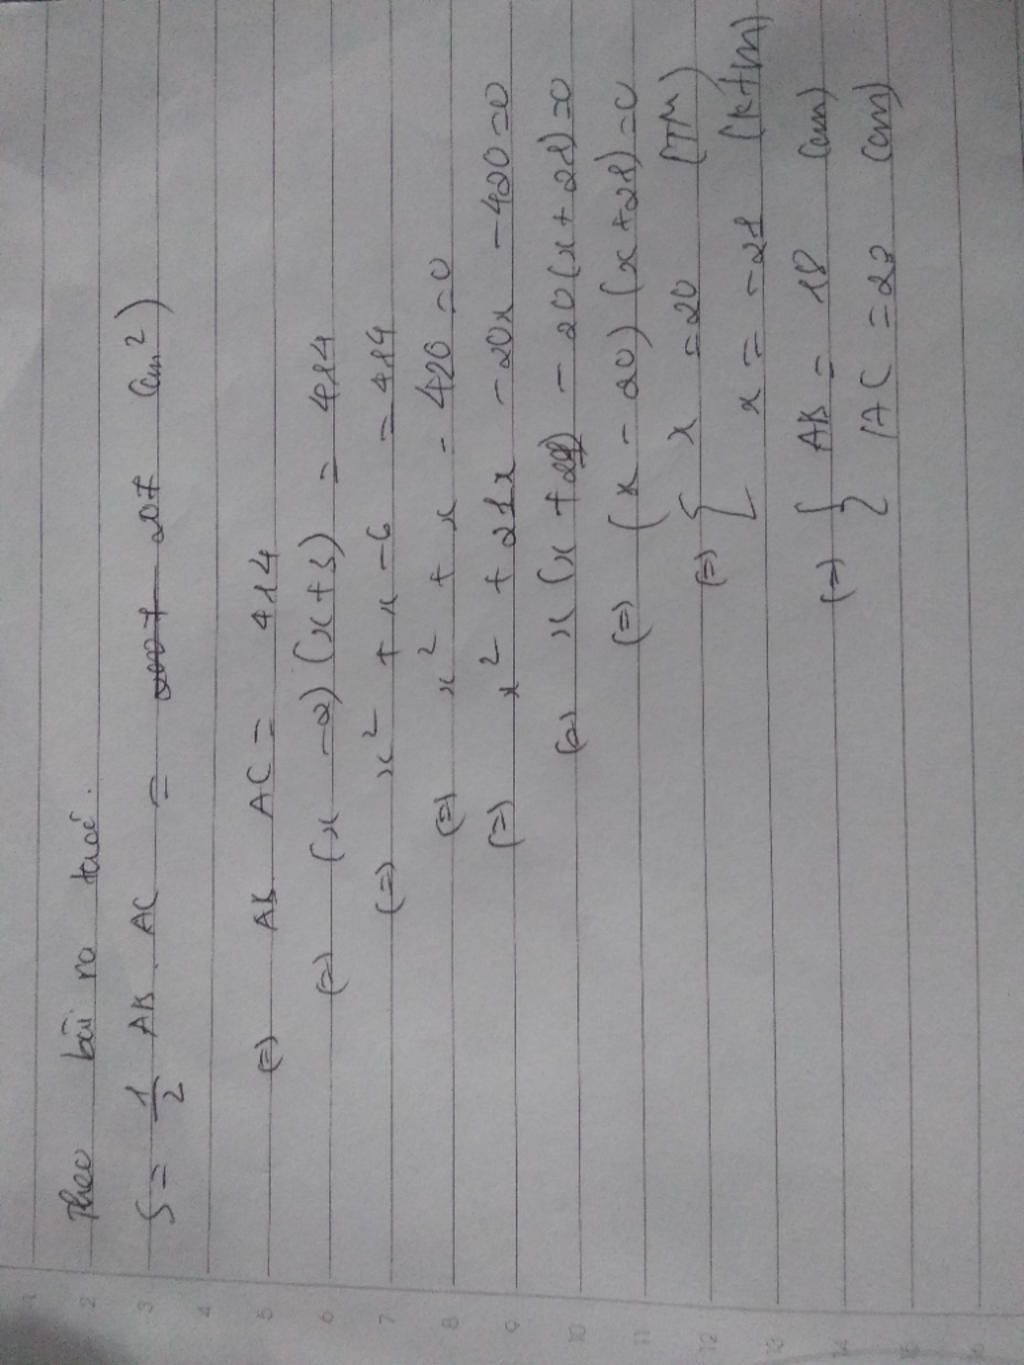 Theo bài ra ta có.
S = 1/2 AB . AC = 207 (cm²)
(=) AB AC = 414
(=) (x - 2) (x + 3) = 414
(=) x² + x - 6 = 414
(=) x² + x - 420 = 0
(=) x² + 21x - 20x - 420 = 0
(=) x (x + 21) - 20 (x + 21) = 0
(=) (x - 20) (x + 21) = 0
(=) [ x = 20 (TM)
x = -21 (k+m)
(=) { AB = 18 (cm)
AC = 23 (cm)
1
2
3
4
5
6
7
8
9
10
11
12
13
14
15
16